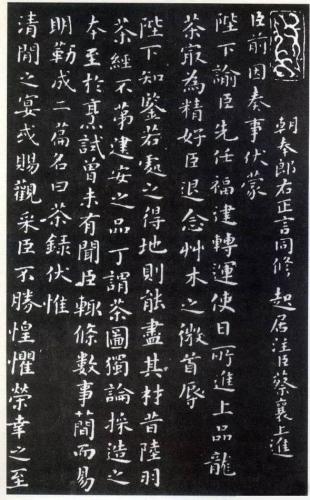 朝奉郎右正言同修起居注臣蔡襄上進
臣前因奏事伏蒙
陛下諭臣先任福建轉運使日所進上品龍
茶㝡為精好臣退念艸木之微首辱
陛下知鑒若處之得地則能盡其材昔陸羽
茶經不第建安之品丁謂茶圖獨論採造之
本至於烹試曾未有聞臣輒條數事簡而易
明勒成二篇名曰茶錄伏惟
清閒之宴或賜觀采臣不勝惶懼榮幸之至